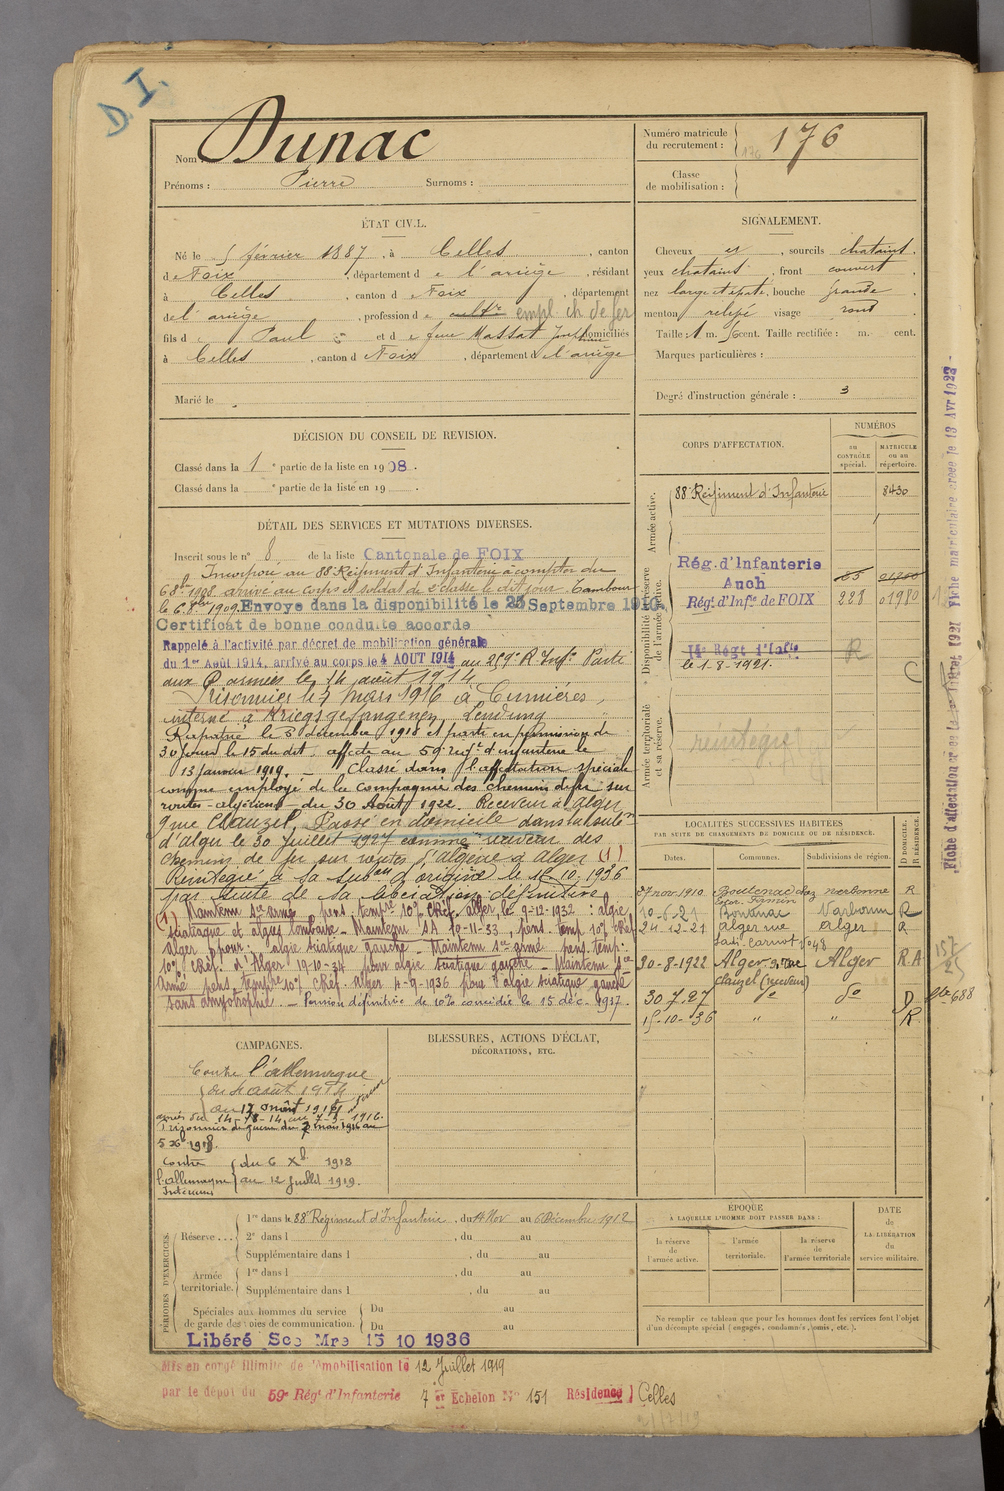 D. I.
Nom : Dunac
Prénoms : Pierre Surnoms :
Numéro matricule du recrutement : 176
176
Classe de mobilisation :
ÉTAT CIVIL.
Né le 5 février 1887, à Celles, canton
de Foix, département de l'ariège, résidant
à Celles, canton de Foix, département
de l'ariège, profession de cultr empl. ch. de fer
fils de Paul et de feue Massat domiciliés
à Celles, canton de Foix, département de l'ariège
Marié le
SIGNALEMENT.
Cheveux et, sourcils chatains.
yeux chatains, front couvert
nez large et épaté, bouche grande
menton relevé visage rond
Taille : 1 m. cent. Taille rectifiée : m. cent.
Marques particulières :
Degré d'instruction générale : 3
DÉCISION DU CONSEIL DE REVISION.
Classé dans la 1e partie de la liste en 1908.
Classé dans la e partie de la liste en 19 .
DÉTAIL DES SERVICES ET MUTATIONS DIVERSES.
Inscrit sous le n° 8 de la liste Cantonale de FOIX
Incorporé au 88 Régiment d'Infanterie à compter du
6 8bre 1908 arrivé au corps et soldat de 2e classe le dit jour. Tambour
le 6 8bre 1909. Envoyé dans la disponibilité le 25 Septembre 1910.
Certificat de bonne conduite accordé
Rappelé à l'activité par décret de mobilisation générale
du 1er Août 1914, arrivé au corps le 4 AOUT 1914 au 259e R. Infie Parti
aux armées le 14 août 1914
Prisonnier le 7 mars 1916 à Cumières
interné à Kriegsgefangenen Sendung
Rapatrié le 5 décembre 1918 et parti en permission de
30 jours le 15 du dit. affecté au 59e regt d'infanterie le
13 janvier 1919. — Classé dans l'affectation spéciale
comme employé de la Compagnie des chemins de fer sur
routes algériens du 30 Août 1922. Receveur à alger
9 rue Clauzel. Passé en domicile dans la subon
d'alger le 30 juillet 1927 comme receveur des
chemins de fer sur routes d'algérie à alger (1)
Réintégré à sa subon d'origine le 15.10.1936
par suite de sa libération définitive
(1) Maintenu Sce armé pens. tempre 10% CRéf. alger, le 9-12-1932 : algie
sciatique et algies lombaires – Maintenu SA 10-11-33, pens. temp 10% CRéf
Alger pour : algie sciatique gauche – Maintenu Sce armé pens. temp:
10% CRéf. d'Alger 19-10-34 pour algie sciatique gauche – Maintenu Sce
Armé pens. tempre 10% CRéf. Alger 4-9-1936 pour algie sciatique gauche
sans amyotrophie. – Pension définitive de 10% concédée le 15 déc. 1937.
CORPS D'AFFECTATION.
NUMÉROS
AU CONTRÔLE spécial.
MATRICULE ou au répertoire.
Armée active.
88e Régiment d'Infanterie 8430
Disponibilité et réserve de l'armée active.
Rég. d'Infanterie
Auch 85
Régt d'Infie de FOIX 228 01980
14e Régt d'Infie R
le 1.8.1921.
C
Armée territoriale et sa réserve.
réintégré
LOCALITÉS SUCCESSIVES HABITÉES
PAR SUITE DE CHANGEMENTS DE DOMICILE OU DE RÉSIDENCE.
Dates. Communes. Subdivisions de région. D DOMICILE. R RÉSIDENCE.
27 nov. 1910 Boutenac chez narbonne R
10-6-21 Boutenac Narbonne R
24-12-21 alger rue alger R
Sadi Carnot n°48
30-8-1922 Alger 9 rue Alger R.A
Clauzel (receveur)
30.7.27 do do D
15-10-36 " " R
157
25
688
CAMPAGNES.
Contre l'allemagne
du 4 août 1914
au 12 1919
armées du 14-8-14 au 7-3-1916.
Prisonnier de guerre du 7 mars 1916 au
5 Xbre 1918.
Contre du 6 Xbre 1918
l'allemagne au 12 juillet 1919.
Intérieur
BLESSURES, ACTIONS D'ÉCLAT,
DÉCORATIONS, ETC.
PÉRIODES D'EXERCICES.
Réserve ... 1re dans le 88e Régiment d'Infanterie, du 14 Nov au 6 Décembre 1912
2e dans l , du au
Supplémentaire dans l , du au
Armée territoriale. 1re dans l , du au
Supplémentaire dans l , du au
Spéciales aux hommes du service de garde des voies de communication. Du au
Du au
ÉPOQUE
À LAQUELLE L'HOMME DOIT PASSER DANS :
la réserve de l'armée active.
l'armée territoriale.
la réserve de l'armée territoriale
DATE de LA LIBÉRATION du service militaire.
Ne remplir ce tableau que pour les hommes dont les services font l'objet
d'un décompte spécial (engagés, condamnés, omis, etc.).
Libéré Sce Mre 15 10 1936
Mis en congé illimité de démobilisation le 12 Juillet 1919
par le dépôt du 59e Régt d'Infanterie 7e Echelon N° 151 Résidence Celles